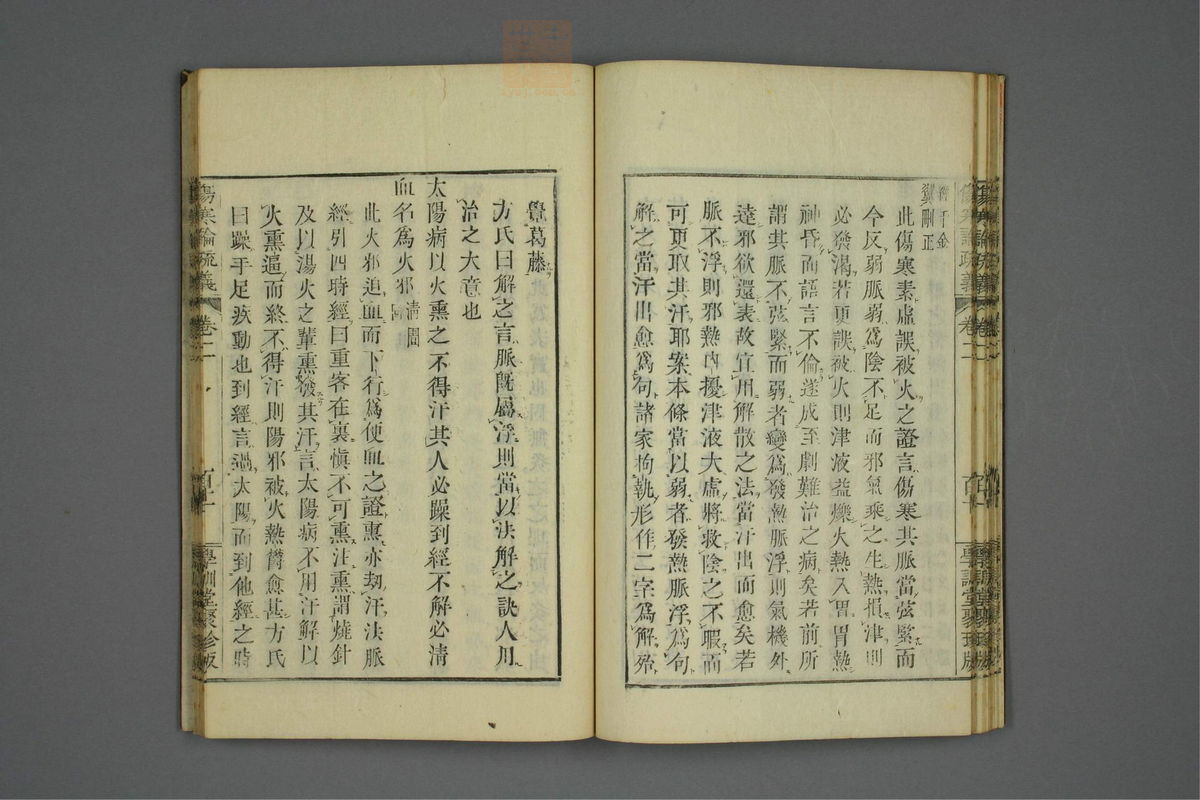 翼剛正
此傷寒素虛誤被火之證言傷寒其脈當弦緊而
今反弱脈弱爲陰不足而邪氣乘之生熱損津則
必發渴若更誤被火則津液益爍火熱入胃胃熱
神昏而語言不倫遂成至劇難治之病矣若前所
謂其脈不弦緊而弱者變爲發熱脈浮則氣機外
達邪欲還表故宜用解散之法當汗出而愈矣若
脈不浮則邪熱內擾津液大虛將救陰之不暇而
可更取其汗耶案本條當以弱者發熱脈浮爲句
解之當汗出愈爲句諸家拘執形作二字爲解殆
覺葛藤
方氏曰解之言脈既屬浮則當以法解之訣人用
治之大意也
太陽病以火熏之不得汗其人必躁到經不解必清
血名爲火邪 清圊
此火邪迫血而下行爲便血之證熏亦劫汗法脈
經引四時經曰重客在裏愼不可熏注熏謂燒針
及以湯火之輩熏發其汗言太陽病不用汗解以
火熏逼而終不得汗則陽邪被火熱鬱愈甚方氏
曰躁手足疾動也到經言過太陽而到他經之時
傷寒論疏義 卷二 百十一 學訓堂聚珍版